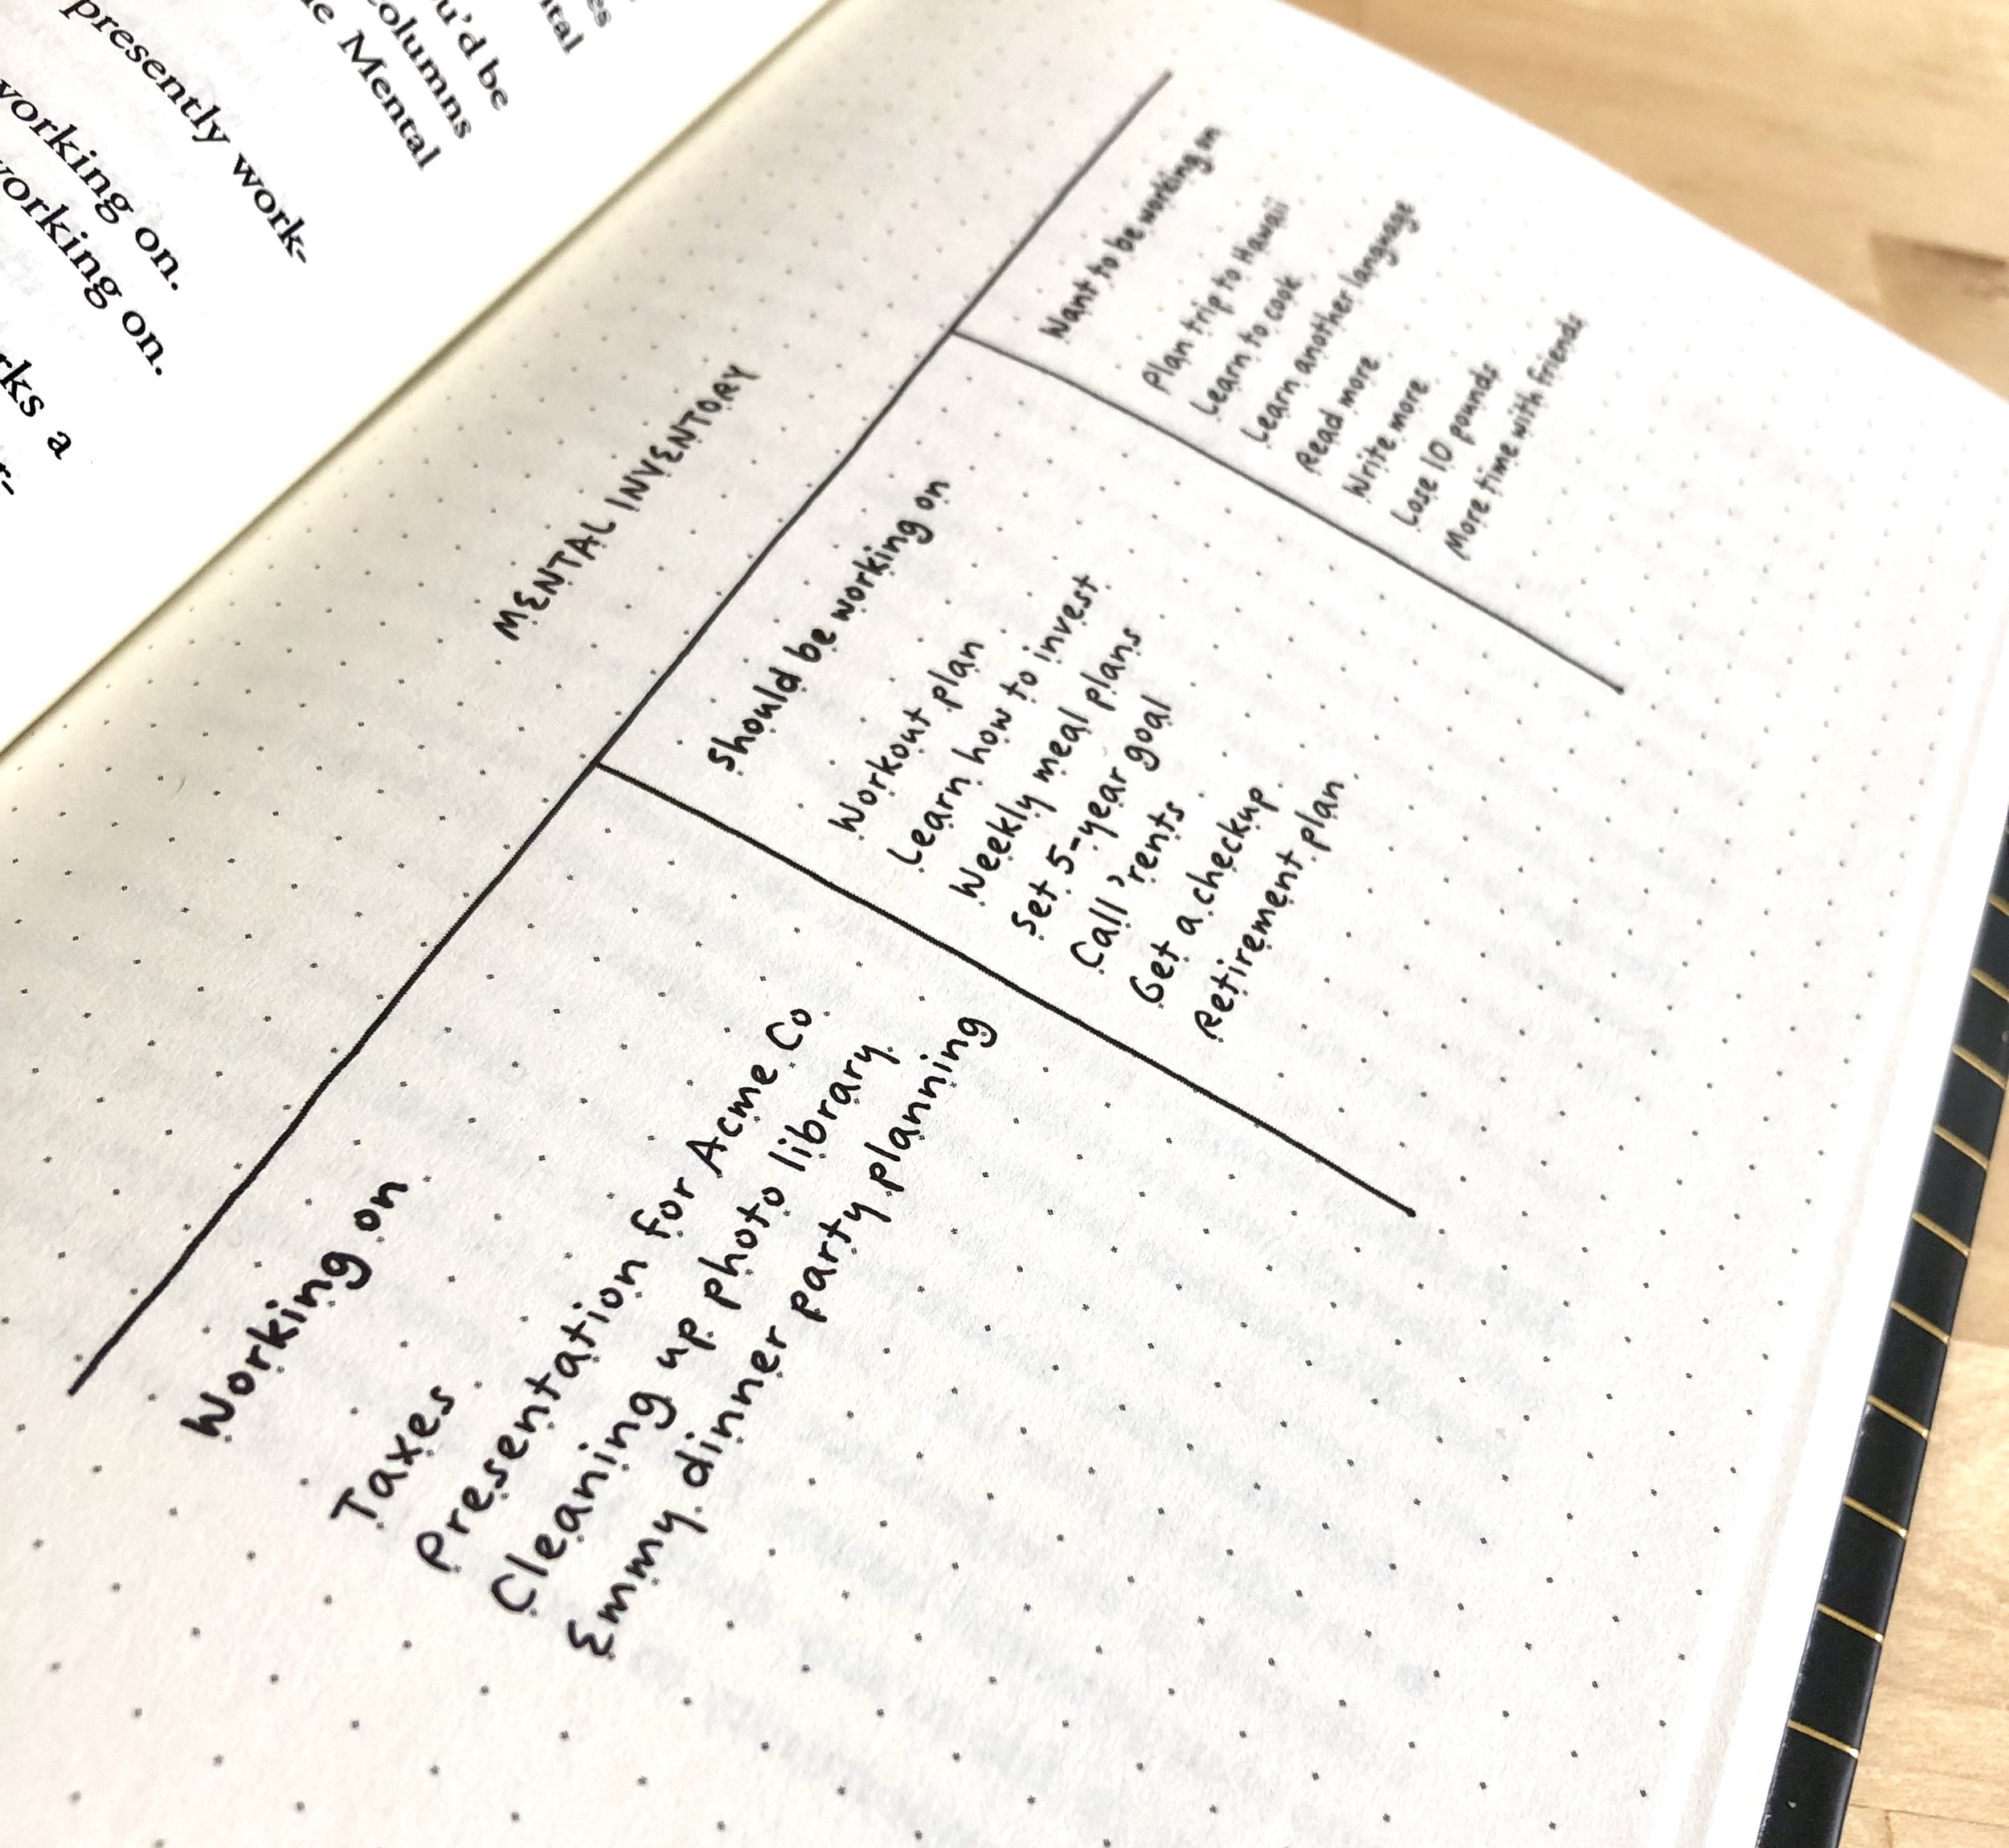 presently work-
working on.
working on.
a
Mental
columns
be
MENTAL INVENTORY
Working on
Taxes
Presentation for Acme Co
Cleaning up photo library
Emmy dinner party planning
Should be working on
Workout plan
Learn how to invest
Weekly meal plans
Set 5-year goal
Call 'rents
Get a checkup
Retirement plan
Want to be working on
Plan trip to Hawaii
Learn to cook
Learn another language
Read more
Write more
Lose 10 pounds
More time with friends